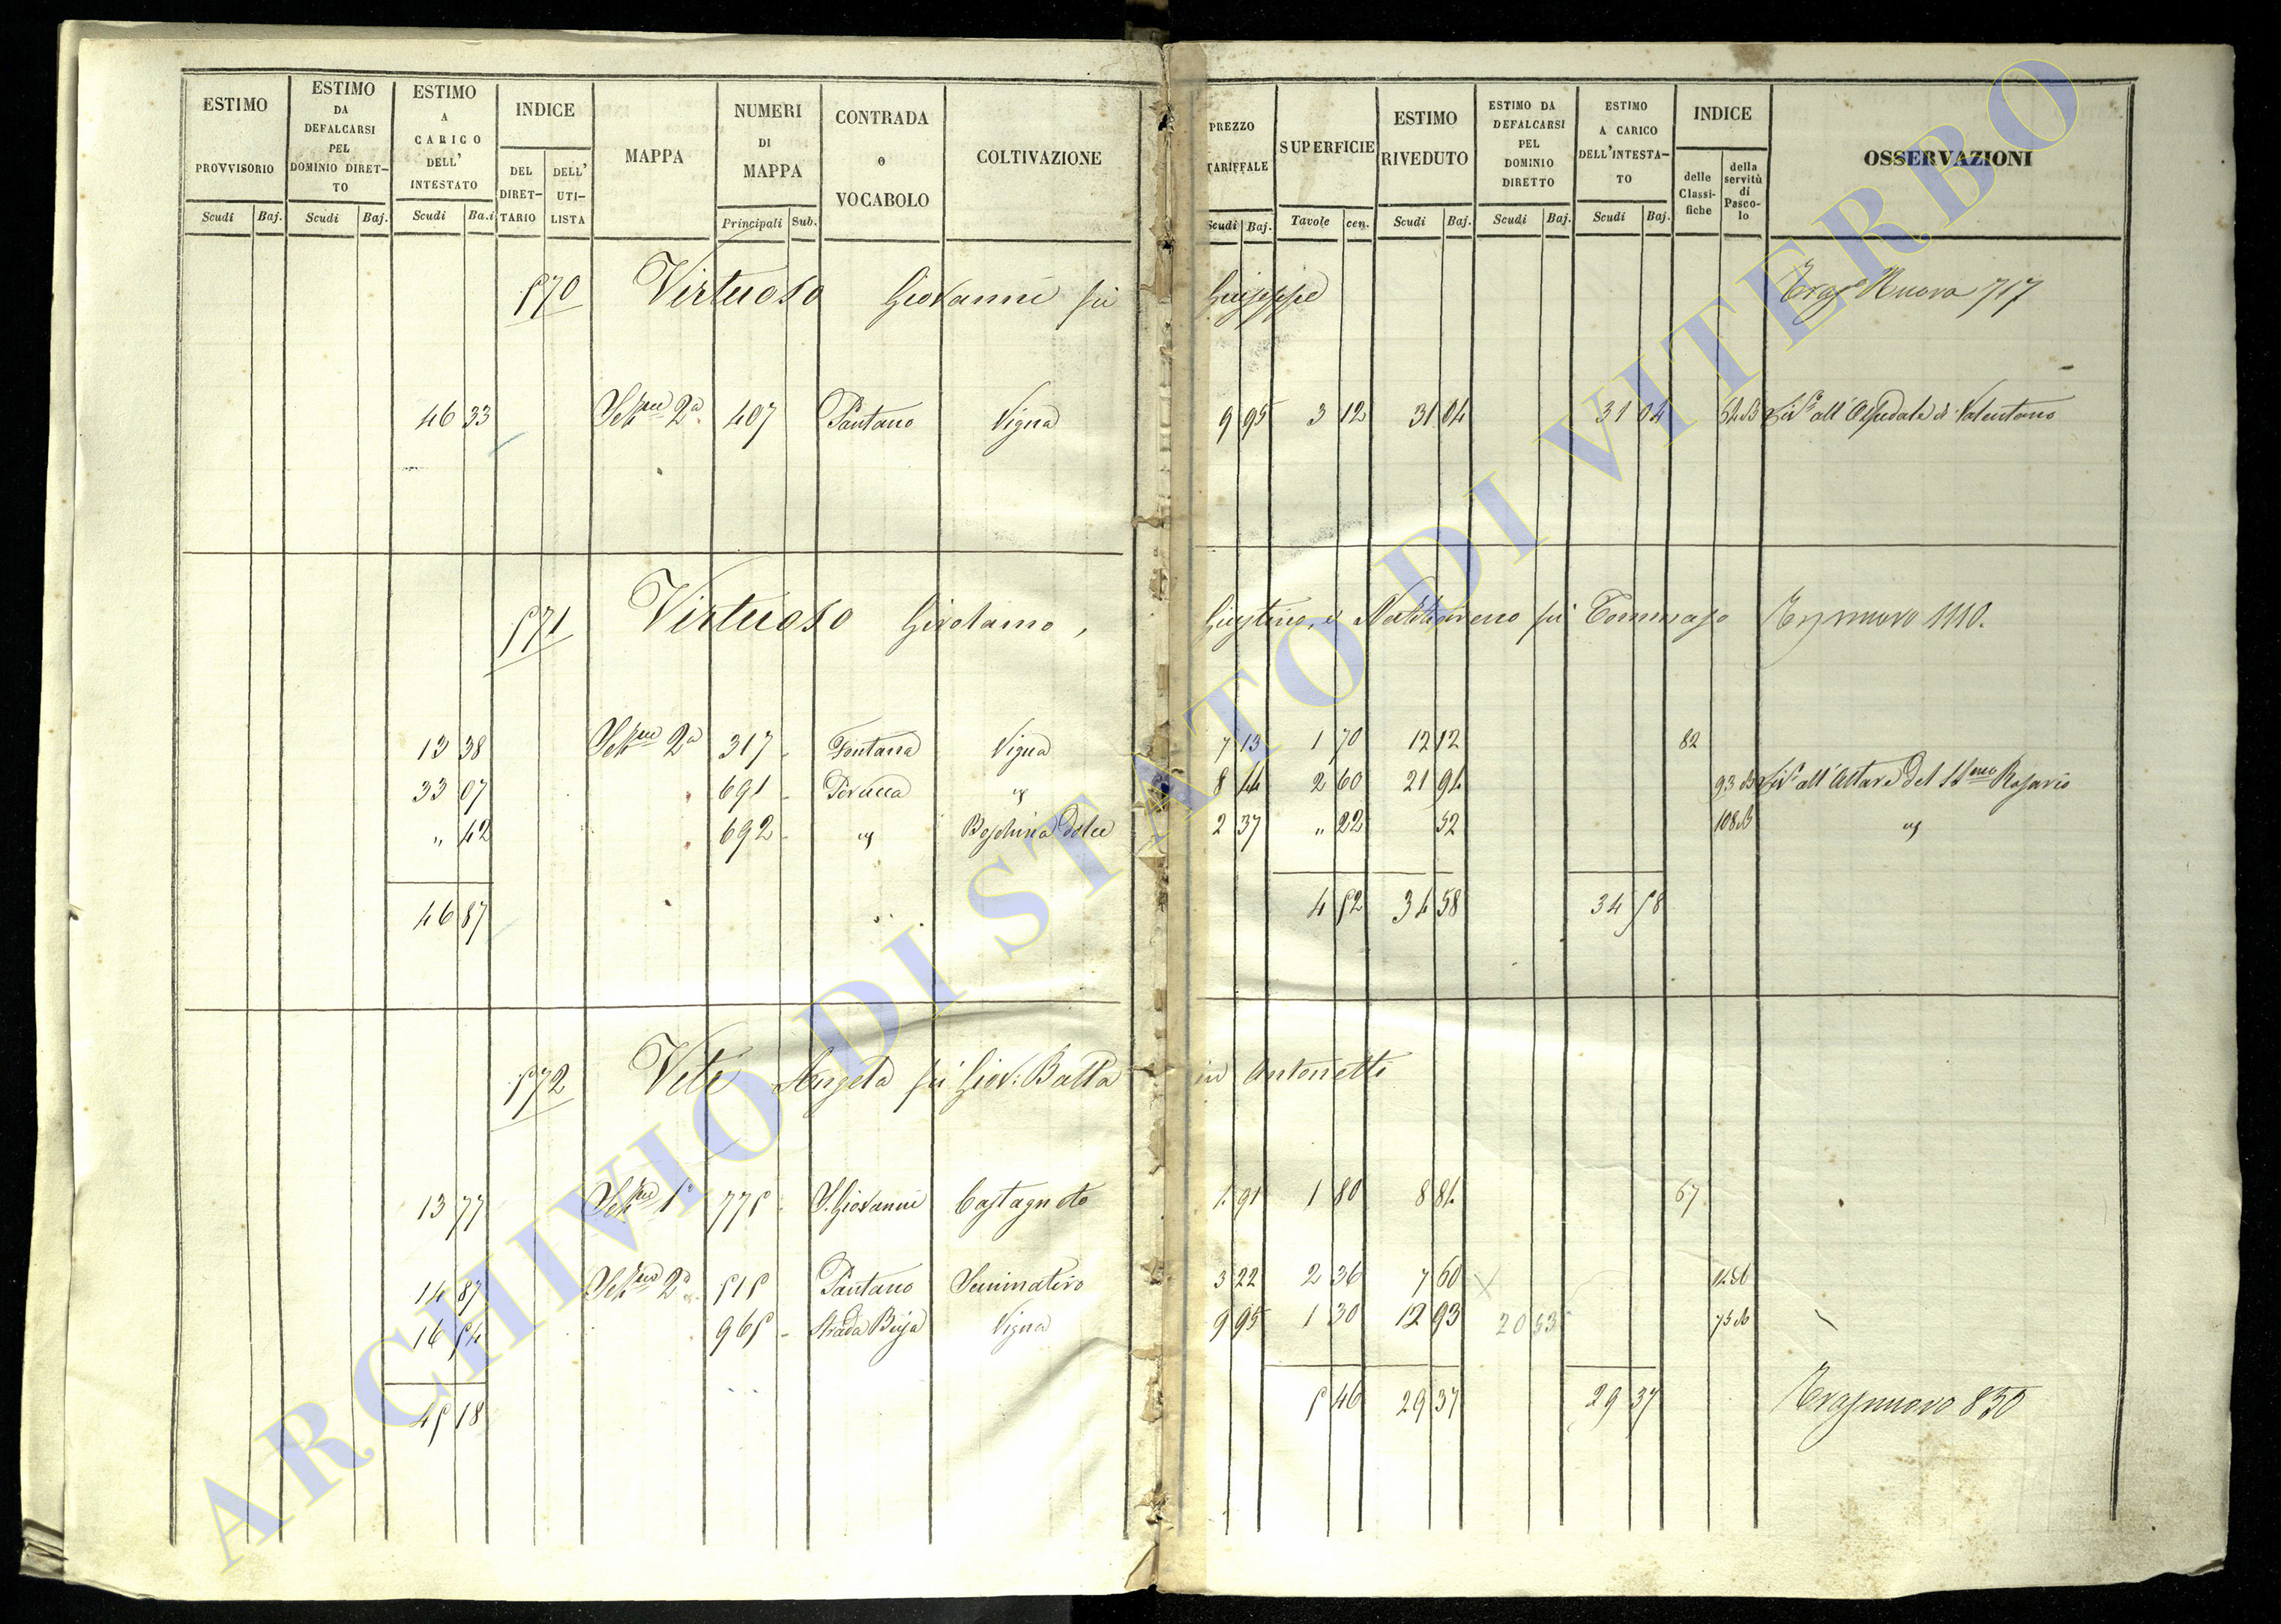 ESTIMO PROVVISORIO
ESTIMO DA DEFALCARSI PEL DOMINIO DIRET-TO
ESTIMO A CARICO DELL' INTESTATO
INDICE
DEL DIRET-TARIO
DELL' UTI-LISTA
MAPPA
NUMERI DI MAPPA
CONTRADA o VOCABOLO
COLTIVAZIONE
PREZZO TARIFFALE
SUPERFICIE
ESTIMO RIVEDUTO
ESTIMO DA DEFALCARSI PEL DOMINIO DIRETTO
ESTIMO A CARICO DELL'INTESTA-TO
INDICE
delle Classi-fiche
della servitù di Pasco-lo
OSSERVAZIONI
Scudi Baj. Scudi Baj. Scudi Ba.i Principali Sub. Scudi Baj. Tavole cen. Scudi Baj. Scudi Baj. Scudi Baj.
570 Virtuoso Giovanni fu Giuseppe Nuova 717
46 33 2a 407 Pantano Vigna 9 95 3 12 31 04 31 04 all'Ospedale di Valentano
571 Virtuoso Girolamo, Giustino, e fu Tommaso nuovo 1110.
13 38 2a 317 Fontana Vigna 7 13 1 70 12 12 82
33 07 691 Perucca " 8 44 2 60 21 94 93 all'Altare del SSmo Rosario
" 42 692 " Boschina dolce 2 37 " 22 52 108 "
46 87 4 52 34 58 34 58
572 Vete Angela fu Giov: Batta in Antonetti
13 77 1a 775 S. Giovanni Castagneto 4 91 1 80 8 84 67
14 87 2a 515 Pantano Seminativo 3 22 2 36 7 60
16 54 965 Strada Buja Vigna 9 95 1 30 12 93 20 53 75
45 18 5 46 29 37 29 37 Trasp nuovo 850
ARCHIVIO DI STATO DI VITERBO